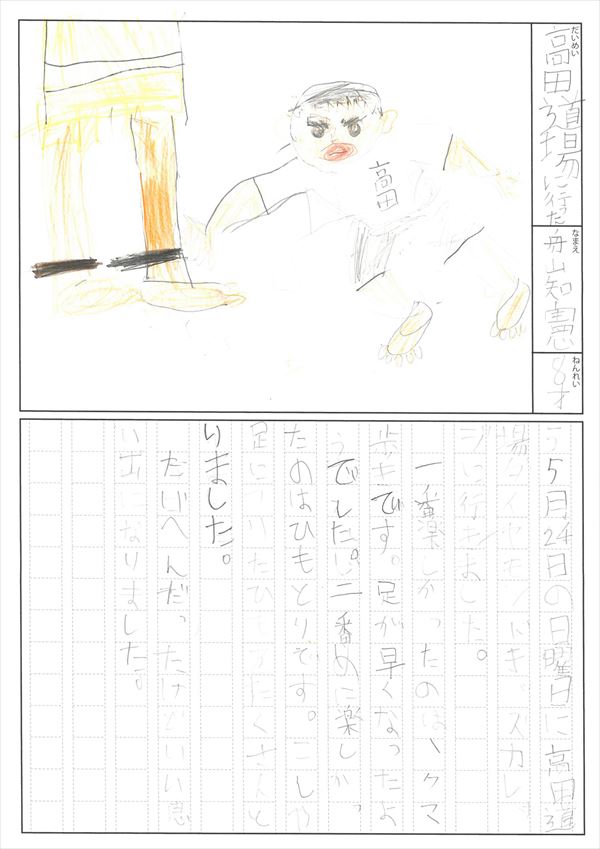 だいめい
高田道場に行った
なまえ
舟山知憲
ねんれい
8才
高田
5月24日の日曜日に高田道
場ダイヤモンドキッズカレッ
ジに行きました。
一番楽しかったのは、クマ
歩きです。足が早くなったよ
うでした。二番めに楽しかっ
たのはひもとりです。こしや
足についたひもをたくさんと
りました。
たいへんだったけどいい思
い出になりました。